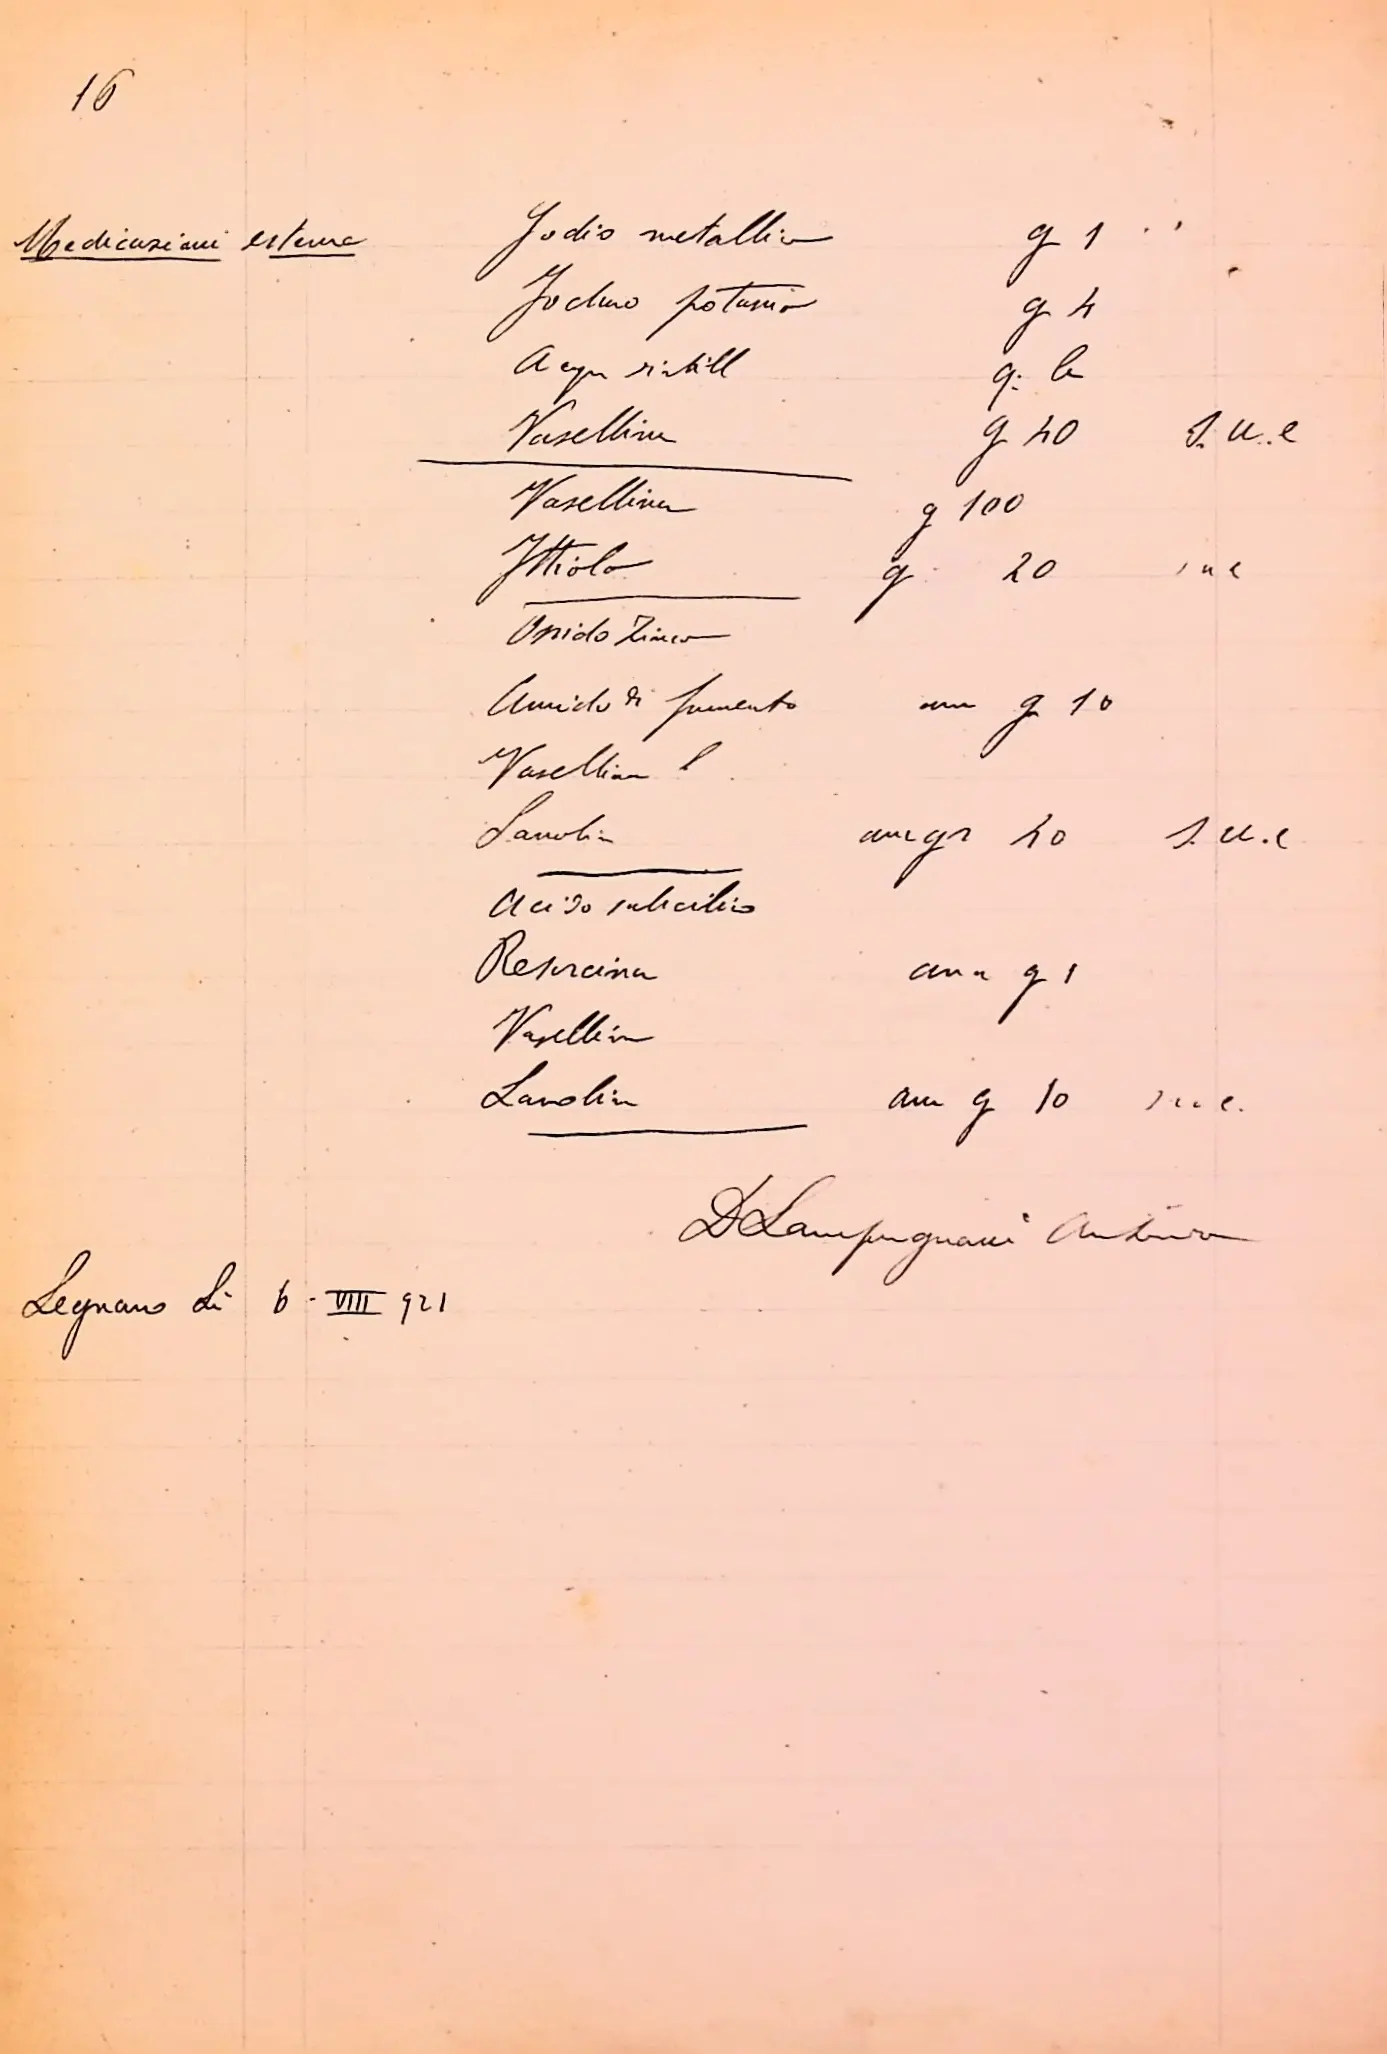 16
Medicazioni esterne
Jodio metallico g 1
Joduro potassio g 4
Acqu distill q. b
Vasellina g 40 S. u. e
Vasellina g 100
Ittiolo g 20 s u e
Ossido Zinco
Amido di frumento ana g 10
Vasellina
Lanolin ana gr 40 S. u. e
Acido salicilico
Resorcina ana g 1
Vasellin
Lanolin ana g 10 s u e.
D Lampugnani Antonio
Legnano Li 6 - VIII 921